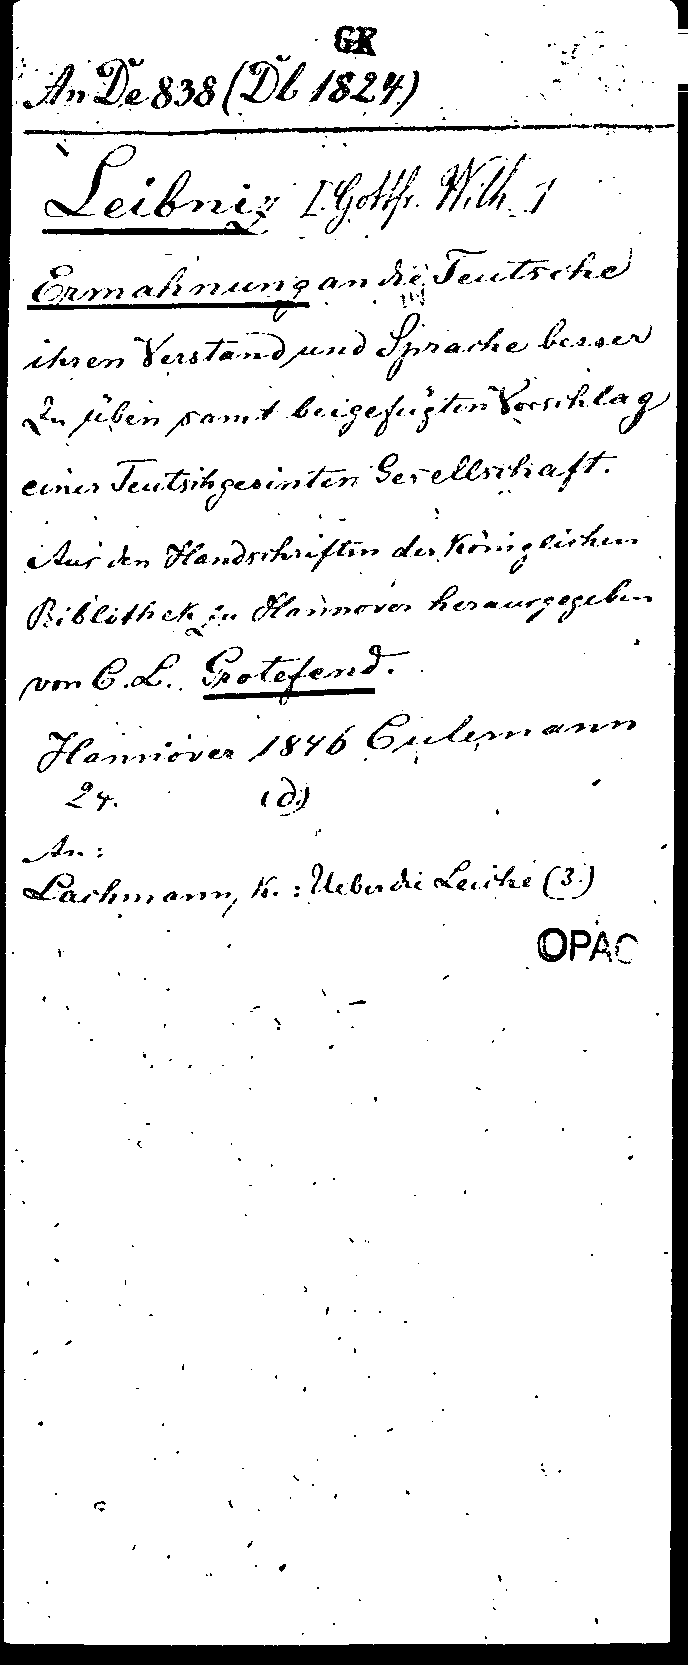 GK
An De 838 (Db 1824)
Leibniz [Gottfr. Wilh.]
Ermahnung an die Teutsche
ihren Verstand und Sprache besser
zu üben samt beigefügten Vorschlag
einer Teutschgesinten Gesellschaft.
Aus den Handschriften der Königlichen
Bibliothek zu Hannover herausgegeben
von C. L. Grotefend.
Hannover 1846 Culemann
24. (d.)
An:
Lachmann, K.: Ueber die Leiche (3.)
OPAC